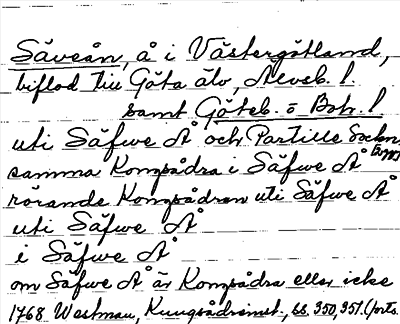 Säveån, å i Västergötland,
biflod till Göta älv, Älvsb. l.
samt Göteb. o Boh. l
uti Säfwe Å och Partille Sockn
samma Kongsådra i Säfwe Å
rörande Kongsådran uti Säfwe Å
uti Säfwe Å
i Säfwe Å
om Säfwe Å är Kongsådra eller icke
1768 Westman, Kungsådreinst., ss. 350, 351. (forts.